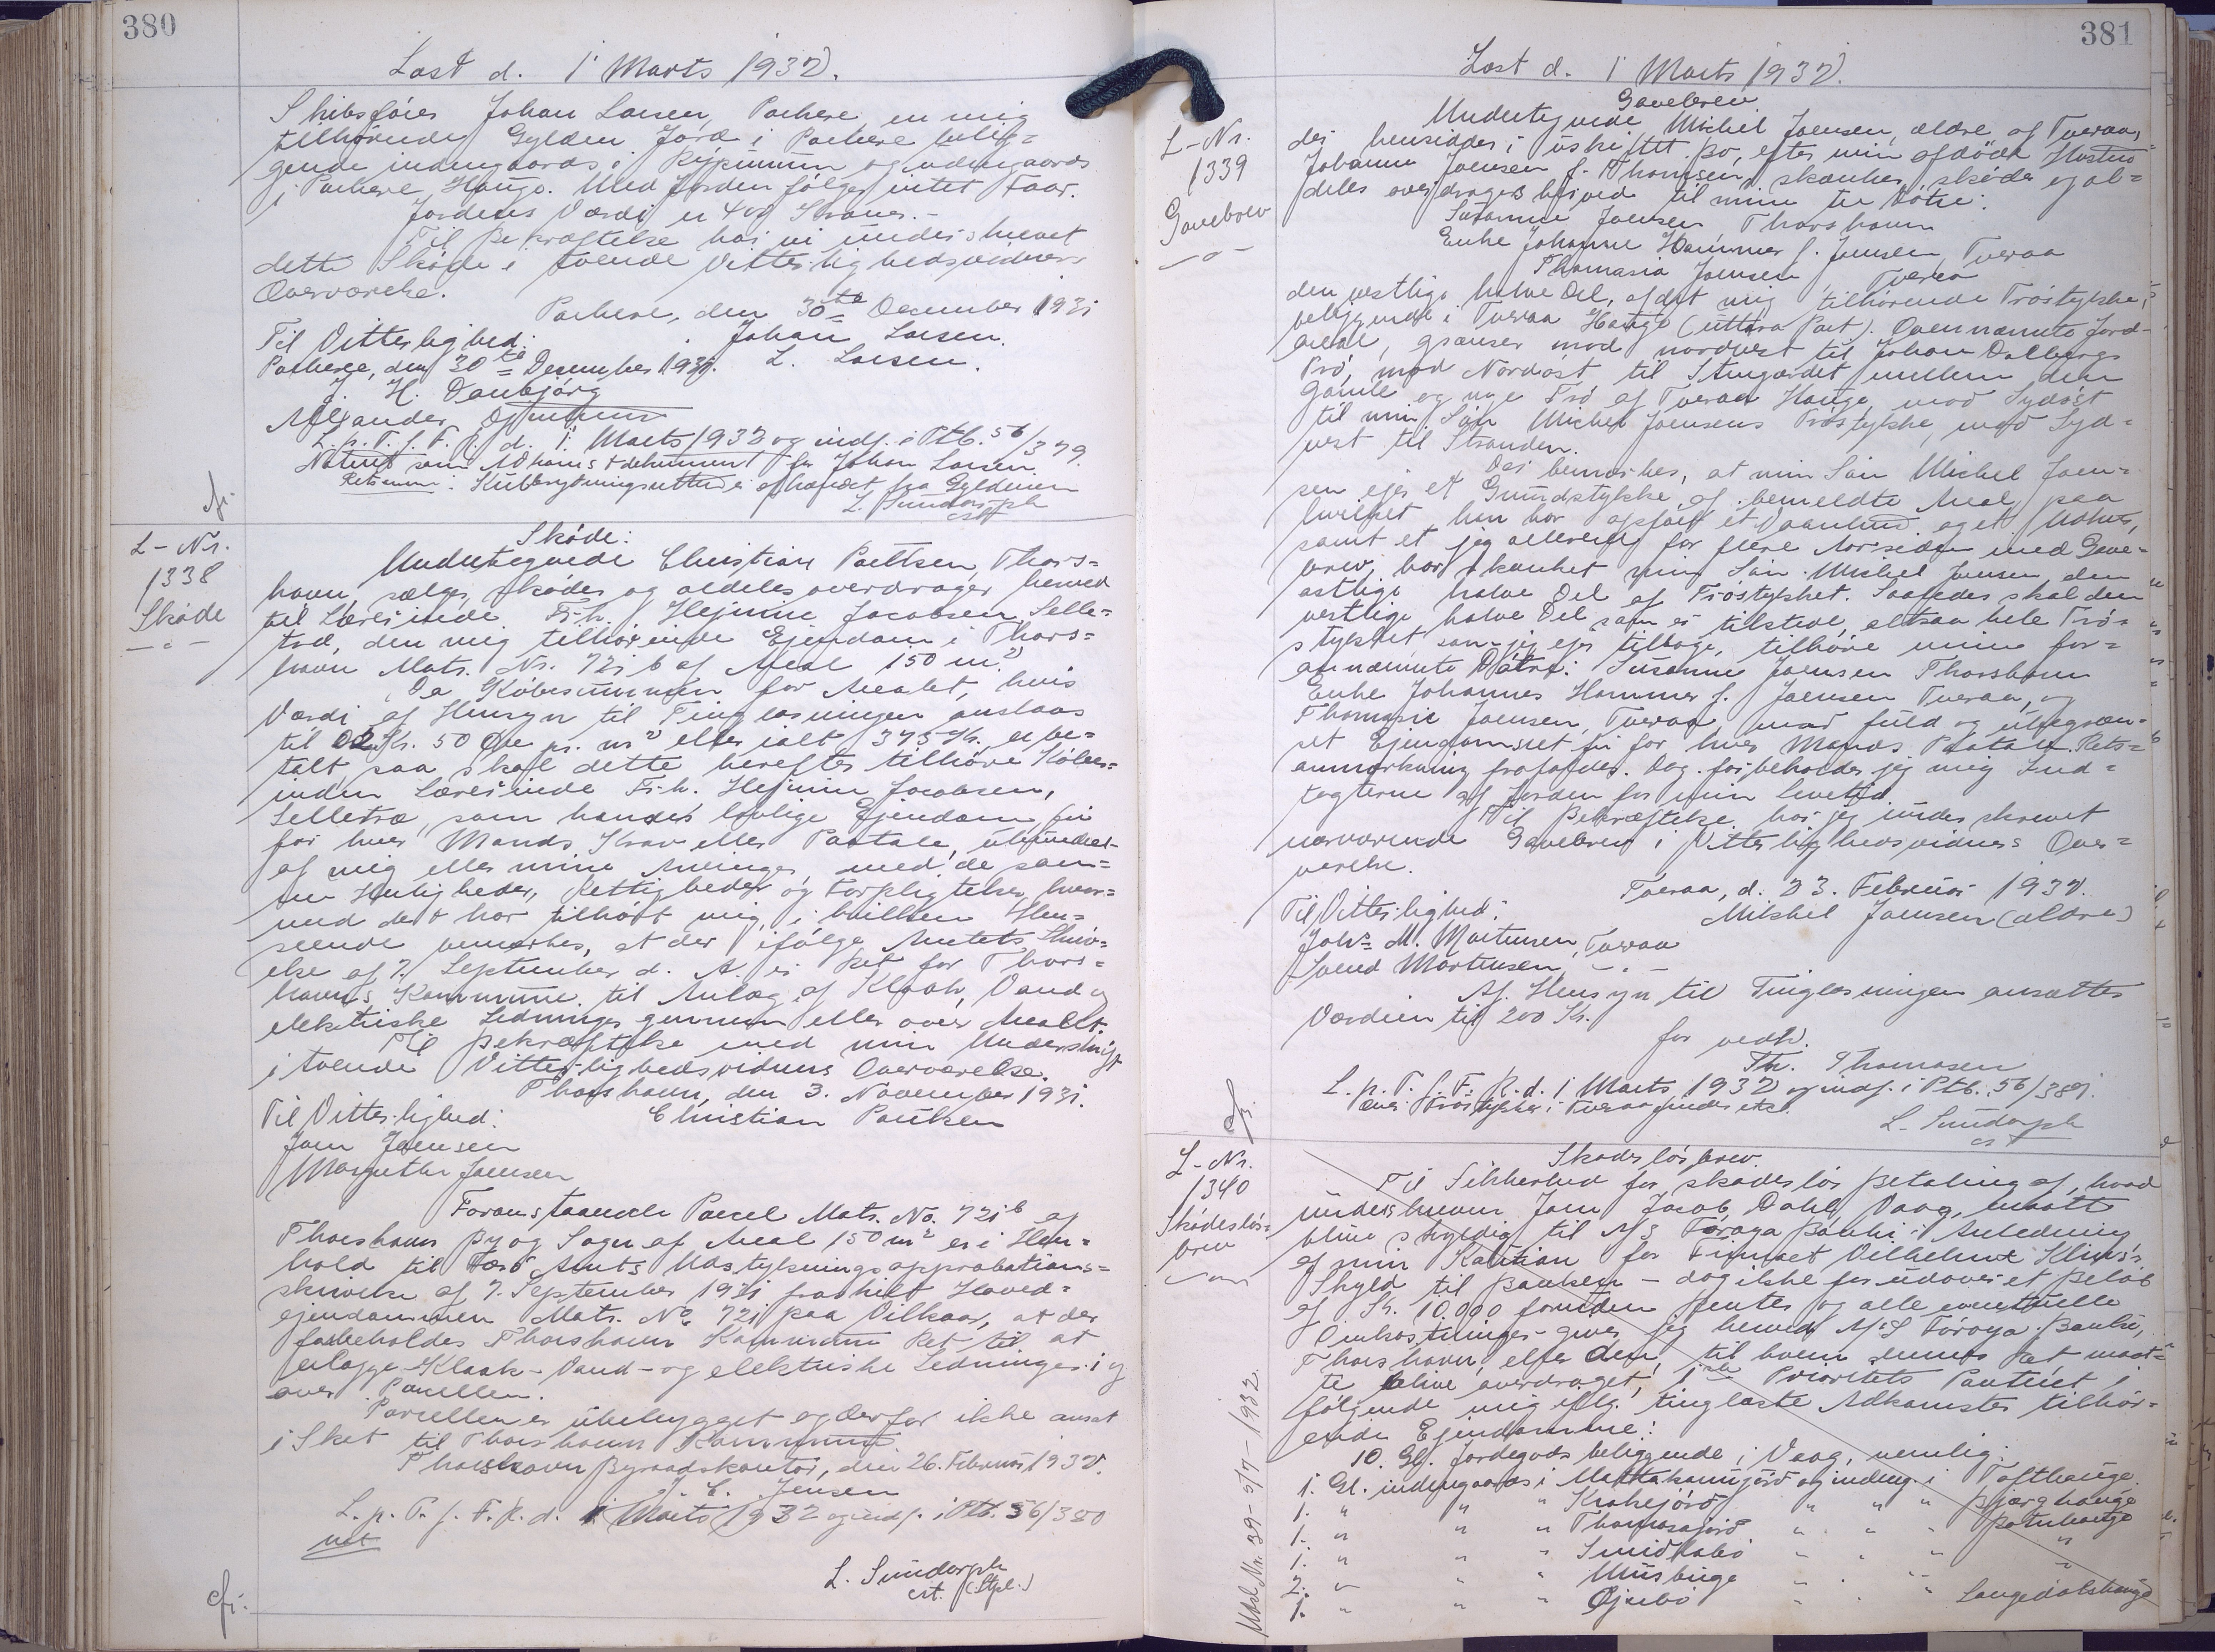 380
Læst d. 1 Marts 1932.
Skibsfører Johan Larsen, Porkere, en mig
tilhørende Gylden Jord i Porkere belig=
gende indengaards i og udengaards
i Porkere Hauge. Med Jorden følger intet Faar.
Jordens Værdi er 400 Kroner.-
Til Bekræftelse har vi underskrevet
dette Skøde i tvende Vitterlighedsvidners
Overværelse.
Porkere, den 30te December 1931
Til Vitterlighed: Johan Larsen.
Porkere, den 30te December 1931. L. Larsen.
J. H. Danbjørg
Alexander
L. p. T. f. F. R. d. 1 Marts 1932 og indf. i Ptb. 56/379.
Noteret som Adkomstdokument for Johan Larsen.
Retsanm: er afhændet fra Gyldenen
L. Sundorph
cst
L-Nr.
1338
Skøde
Skøde:
Undertegnede Christian Poulsen, Thors=
havn, sælger, skøder og aldeles overdrager herved
til Lærerinde Frk. Hejnine Jacobsen, Selle=
træ, den mig tilhørende Ejendom i Thors=
havn Matr. Nr. 72i b af Areal 150 m2.
Da Købesummen for Arealet, hvis
Værdi af Hensyn til Tinglæsningen anslaas
til 02 Kr. 50 Øre pr. m2 eller ialt 375 Kr. er be=
talt, saa skal dette herefter tilhøre Køber=
inden Lærerinde Frk. Hejnine Jacobsen,
Selletræ, som hendes lovlige Ejendom fri
for hver Mands Krav eller Paatale, ubehindret
af mig eller mine Arvinger med de sam=
me Herligheder, Rettigheder og Forpligtelser, hvor=
med det har tilhørt mig, i hvilken Hen=
seende bemærkes, at der ifølge Amtets Skriv=
else af 7. September d. A. er Ret for Thors=
havns Kommune til Anlæg af Kloak, Vand og
elektriske Ledninger gennem eller over Arealet.
Til Bekræftelse med min Underskrift
i tvende Vitterlighedsvidners Overværelse.
Thorshavn, den 3. November 1931.
Til Vitterlighed: Christian Poulsen
Joen Joensen
Margrethe Joensen
Foranstaaende Parcel Matr. No. 72i b af
Thorshavn By og Sogn af Areal 150 m2 er i Hen=
hold til Færø Amts Udstykningsapprobations=
skrivelse af 7. September 1931 fraskilt Hoved=
ejendommen Matr. No 72i paa Vilkaar, at der
forbeholdes Thorshavn Kommune Ret til at
anlægge Kloak- Vand- og elektriske Ledninger i og
over Parcellen.
Parcellen er ubebygget og derfor ikke ansat
i Skat til Thorshavn Kommune
Thorshavn Byraadskontor, den 26. Februar 1932.
E. Jensen
L. p. T. f. F. R. d. 1 Marts 1932 og indf. i Ptb. 56/380
L. Sundorph
cst. (Stpl.)
cfr:
381
Læst d. 1 Marts 1932.
L-Nr.
1339
Gavebrev
Gavebrev
Undertegnede Michel Joensen, ældre af Tveraa,
der hensidder i uskiftet Bo, efter min afdøde Hustru
Johanne Joensen f. Thomsen, skænker, skøder og al=
deles overdrager herved til mine tre Døtre:
Susanne Joensen, Thorshavn
Enke Johanne Hammer f. Joensen, Tveraa
Thomasia Joensen, Tveraa
den vestlige halve Del, af det mig tilhørende Trøstykke,
beliggende i Tveraa Hauge (uttara Part). Ovennævnte Jord-
areal, grænser mod nordvest til Johan Dalbergs
Trø, mod Nordøst til Stengærdet mellem den
gamle og nye Trø af Tveraa Hauge, mod Sydøst
til min Søn Michel Joensens Trøstykke, mod Syd=
vest til Stranden.
Det bemærkes, at min Søn Michel Joen=
sen ejer et Grundstykke af bemeldte Areal, paa
hvilket han har opført et Vaanhus og et Udhus,
samt at jeg allerede for flere Aar siden med Gave=
brev, har skænket min Søn Michel Joensen den
østlige halve Del af Trøstykket. Saaledes skal den
vestlige halve Del som er tilstede, altsaa hele Trø=
stykket, som jeg ejer tilbage, tilhøre mine for=
annævnte Døtre: Susanne Joensen Thorshavn
Enke Johannes Hammer f. Joensen Tveraa, og
Thomasia Joensen, Tveraa med fuld og ubegræn=
set Ejendomsret fri for hver Mands Paatale. Rets=
anmærkning frafaldes. Dog forbeholder jeg mig Ind=
tægterne af Jorden for min Levetid.
Til Bekræftelse har jeg underskrevet
nærværende Gavebrev i Vitterlighedsvidners Over=
værelse.
Tveraa, d. 23. Februar 1932.
Til Vitterlighed: Mikkel Joensen (ældre)
Johs M. Mortensen, Tveraa
Svend Mortensen, -"-
Af Hensyn til Tinglæsningen ansættes
Værdien til 200 Kr.
for vedk.
Th. Thomasen
L. p. T. f. F. R. d. 1 Marts 1932 og indf. i Ptb. 56/381.
L. Sundorph
cst
cfr.
L-Nr.
1340
Skadesløs=
brev
Skadesløsbrev.
Til Sikkerhed for skadesløs Betaling af, hvad
undertegnede Joen Jacob Dahl, Vaag, maatte
blive skyldig til A/S Føroya Banki i Anledning
af min Kaution for Firmaet Vilhelms
Skyld til Banken - dog ikke for udover et Beløb
af Kr. 10.000 foruden Renter og alle eventuelle
Omkostninger - giver jeg herved A/S Føroya Banki,
Thorshavn, eller den, til hvem dennes Ret maat=
te blive overdraget, 1ste Prioritets Panteret i
følgende mig iflg. tinglæste Adkomster tilhør=
ende Ejendomme:
10. Gl. Jordegods beliggende i Vaag, nemlig:
1. Gl. indengaards i og udeng. i Tofthauge
1. " " " Krakejørd " " " Bjarghauge
1. " " " Thomasajørd " " " Botnhauge
1. " " " " " " "
2. " " " " " " "
1. " " " " " " Langedalshauge